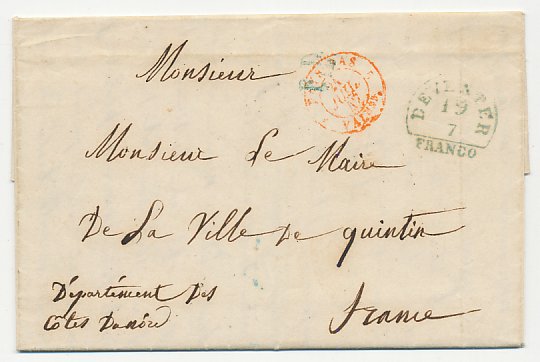 Monsieur
DEVENTER
19
7
FRANCO
Monsieur Le Maire
De La Ville De quintin
Département Des
Côtes Dunord
France